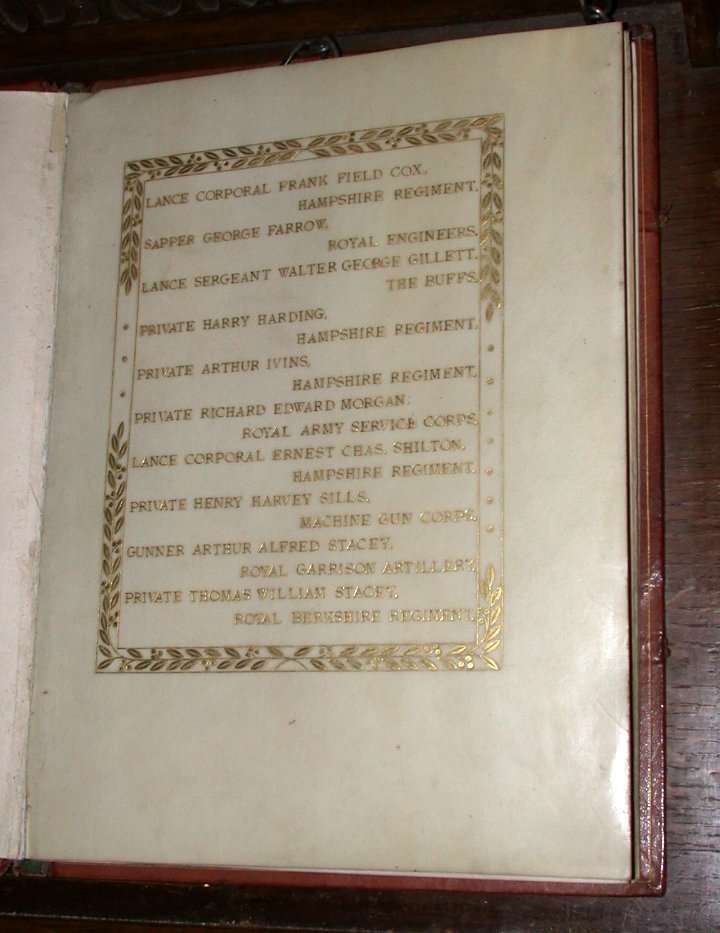 LANCE CORPORAL FRANK FIELD COX,
HAMPSHIRE REGIMENT.
SAPPER GEORGE FARROW,
ROYAL ENGINEERS.
LANCE SERGEANT WALTER GEORGE GILLETT,
THE BUFFS.
PRIVATE HARRY HARDING,
HAMPSHIRE REGIMENT.
PRIVATE ARTHUR IVINS,
HAMPSHIRE REGIMENT.
PRIVATE RICHARD EDWARD MORGAN,
ROYAL ARMY SERVICE CORPS.
LANCE CORPORAL ERNEST CHAS. SHILTON,
HAMPSHIRE REGIMENT.
PRIVATE HENRY HARVEY SILLS,
MACHINE GUN CORPS.
GUNNER ARTHUR ALFRED STACEY,
ROYAL GARRISON ARTILLERY.
PRIVATE THOMAS WILLIAM STACEY,
ROYAL BERKSHIRE REGIMENT.